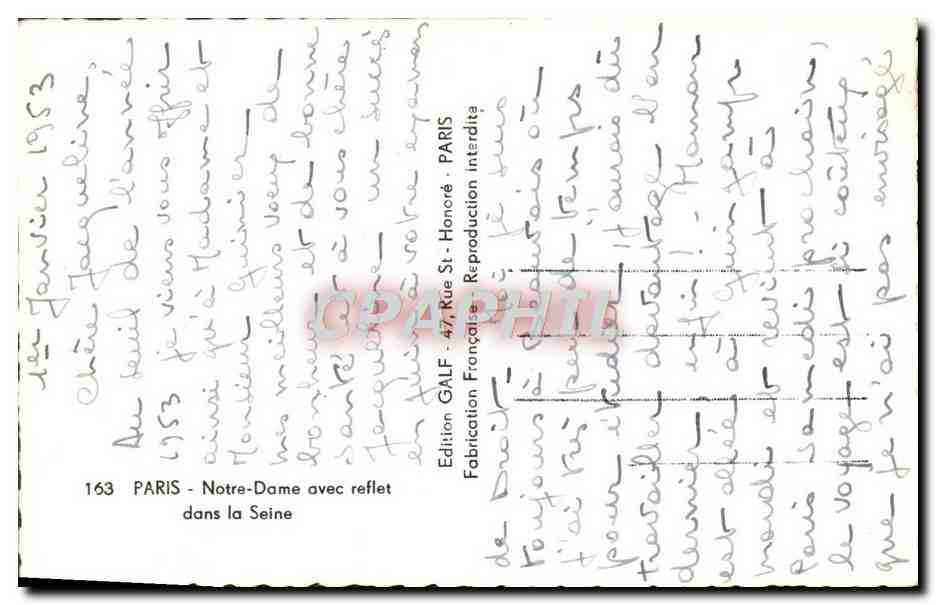 1er Janvier 1953
Chère Jacqueline,
Au seuil de l'année
1953 je viens vous offrir
ainsi qu'à Madame et
Monsieur
mes meilleurs vœux de
bonheur et de bonne
santé et à vous chère
Jacqueline un succès
en juin à votre examen
de Droit. je suis
toujours à Beauvais où
j'ai très peu de temps
pour étudier. il aurait dû
travailler davantage l'an
dernier enfin! - Maman
est allée à
mardi et revient à
Paris samedi prochain,
le voyage est si coûteux
que je n'ai pas envisagé
Edition GALF - 47, Rue St - Honoré - PARIS
Fabrication Française - Reproduction interdite
163 PARIS - Notre-Dame avec reflet
dans la Seine
CPARPHIL